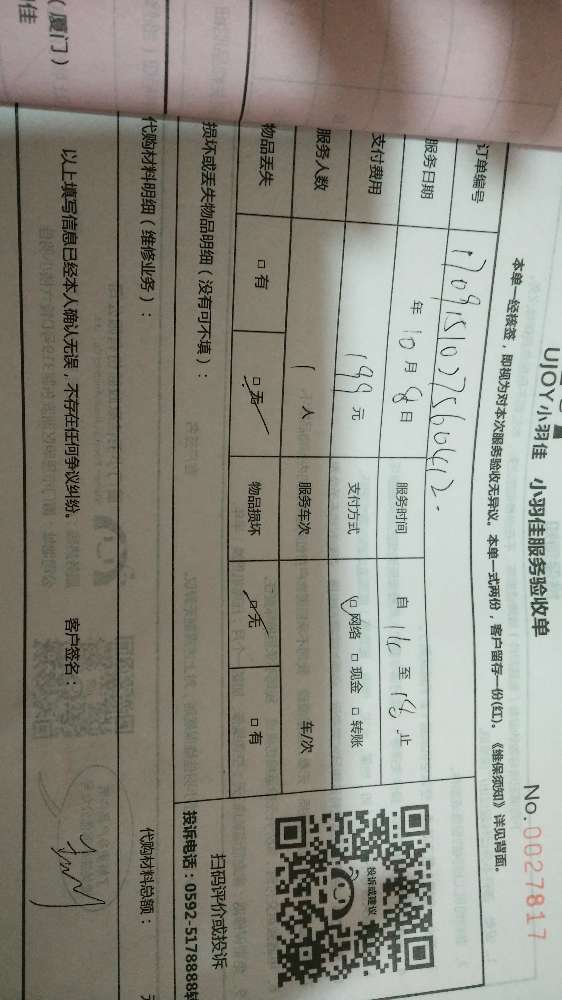 UJOY小羽佳 小羽佳服务验收单
No.0027817
本单一经核签，即视为对本次服务验收无异议。本单一式两份，客户留存一份(红)。《维保须知》详见背面。
订单编号
服务日期 年 10 月 8 日 服务时间 自 16 至 18 止
支付费用 199 元 支付方式 □网络 □现金 □转账
服务人数 1 人 服务车次 车/次
物品丢失 □有 □无 物品损坏 □无 □有
损坏或丢失物品明细（没有可不填）：
投诉或建议
扫码评价或投诉
投诉电话：0592-5178888转
代购材料明细（维修业务）：
代购材料总额： 元
以上填写信息已经本人确认无误，不存在任何争议纠纷。 客户签名：
（厦门）
佳